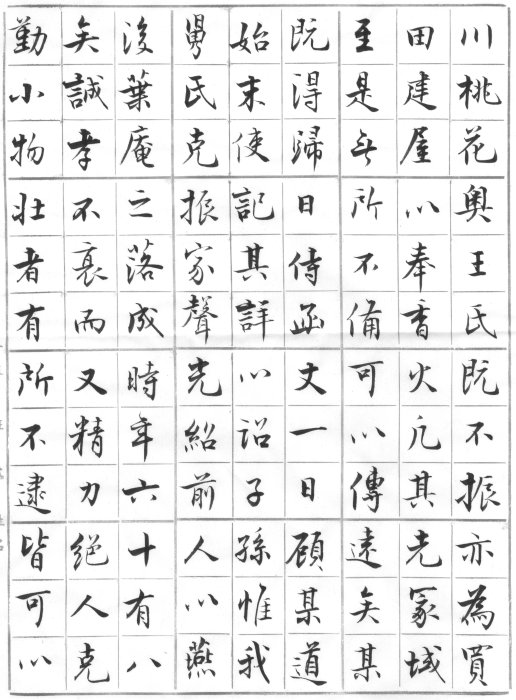 川桃花奧王氏既不振亦為買
田建屋以奉香火凡其先冢域
至是無所不備可以傳遠矣某
既得歸日侍函丈一日顧某道
始末使記其詳以詔子孫惟我
舅氏克振家聲光紹前人以燕
後葉庵之落成時年六十有八
矣誠孝不衰而又精力絕人克
勤小物壯者有所不逮皆可以